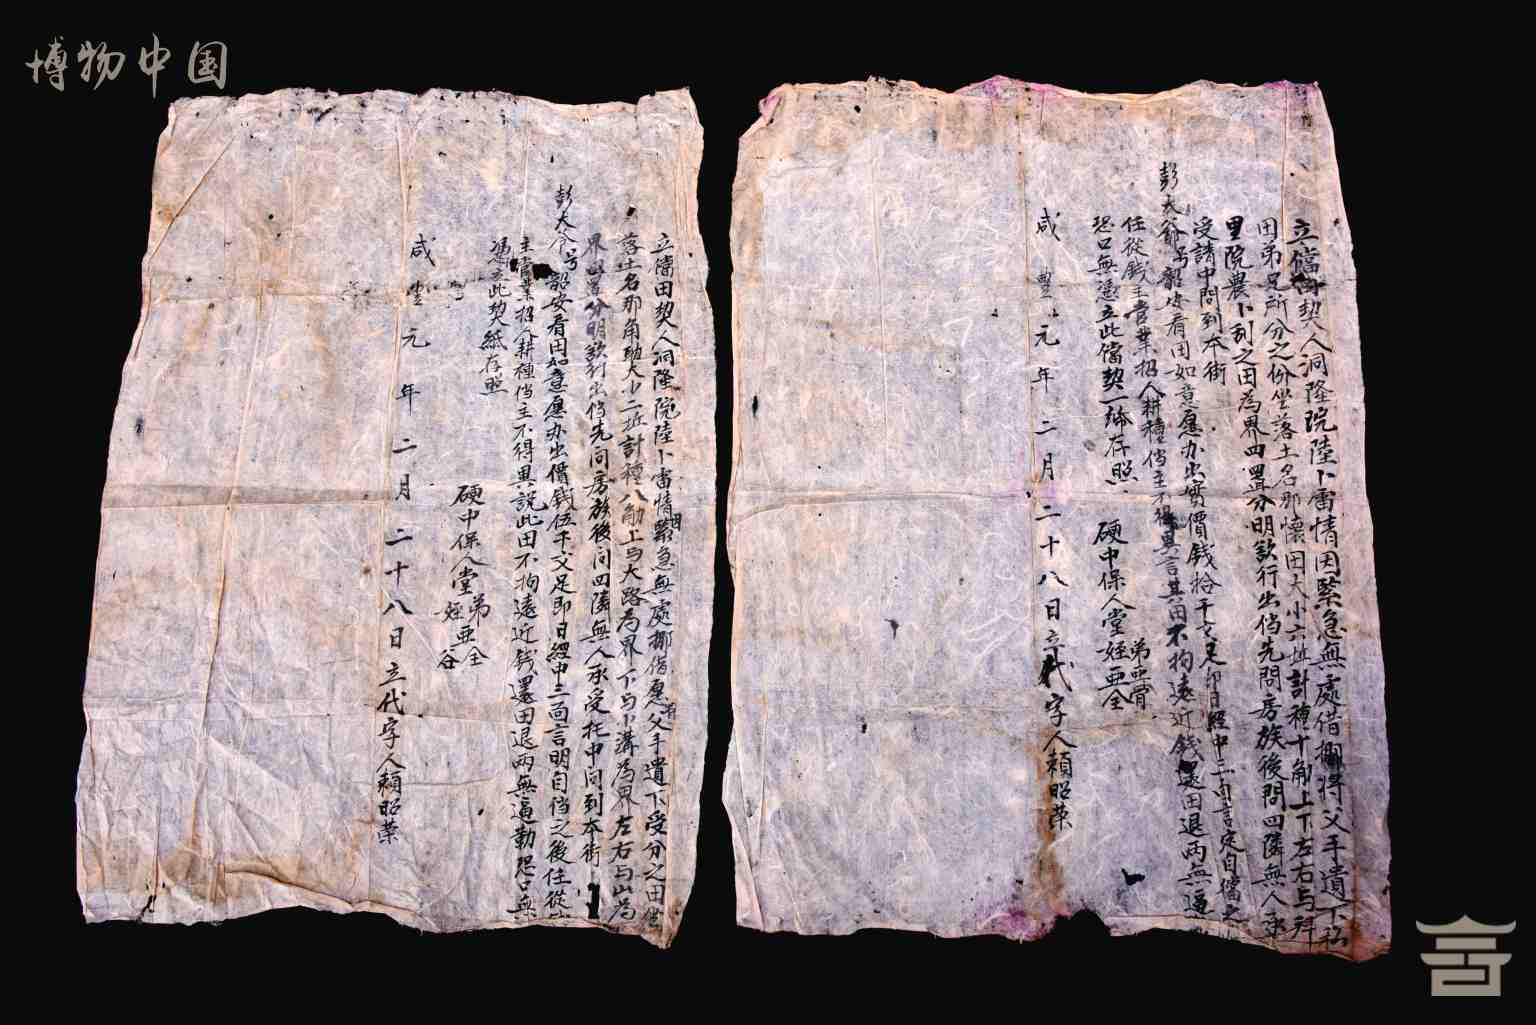 博物中国
立儅田契人洞隆院陸卜雷情因緊急無處借挪將父手遺下私
田弟兄所分之份坐落土名那懷田大小六坵計種十觔上下左右与科
里院農卜刮之田為界四置分明欲行出儅先問房族後問四隣無人承
受請中問到本街
彭大爺号韶安看田如意愿办出實價錢拾千文足即日經中三面言定自儅之
任從錢主管業招人耕種儅主不得異言其田不拘遠近錢還田退兩無逼
恐口無憑立此儅契一紙存照
硬中保人堂
弟亜肯
姪亜全
咸豐元年二月二十八日立代字人賴昭荣
立儅田契人洞隆院陸卜雷情因緊急無處挪借愿有父手遺下受分之田坐
落土名那角勈大小二坵計種八觔上与大路為界下与小溝為界左右与山為
界四置分明欲行出儅先问房族後问四隣無人承受托中问到本街
彭大爷号韶安看田如意愿办出價錢伍千文足即日經中三面言明自儅之後任從
主管業招人耕種儅主不得異説此田不拘遠近錢還田退兩無逼勒恐口無
憑立此契紙存照
硬中保人堂
弟亜全
姪 谷
咸豐元年二月二十八日立代字人賴昭荣